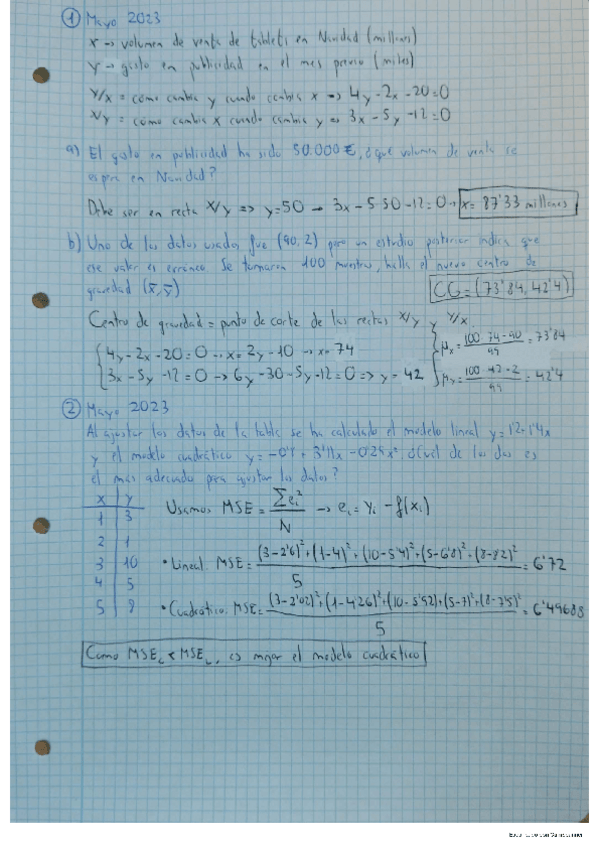 ① Mayo 2023
x → volumen de venta de tablets en Navidad (millones)
y → gasto en publicidad en el mes previo (miles)
Y/x = como cambia y cuando cambia x ⇒ 4y-2x-20=0
X/y = como cambia x cuando cambia y ⇒ 3x-5y-12=0
a) El gasto en publicidad ha sido 50.000€, ¿qué volumen de venta se
espera en Navidad?
Debe ser en recta X/y ⇒ y=50 → 3x-5·50-12=0 → x= 87'33 millones
b) Uno de los datos usados fue (90,2) pero un estudio posterior indica que
ese valor es erróneo. Se tomaron 100 muestras, halla el nuevo centro de
gravedad (x̄,ȳ)
CG=(73'84, 42'4)
Centro de gravedad = punto de corte de las rectas X/y y Y/x
4y-2x-20=0 → x=2y-10 → x=74
3x-5y-12=0 → 6y-30-5y-12=0 ⇒ y=42
μx = (100·74-90)/99 = 73'84
μy = (100·42-2)/99 = 42'4
② Mayo 2023
Al ajustar los datos de la tabla se ha calculado el modelo lineal y=1'2+1'4x
y el modelo cuadrático y=-0'4+3'11x-0'29x² ¿Cuál de los dos es
el más adecuado para ajustar los datos?
x y
1 3
2 1
3 10
4 5
5 8
Usamos MSE = Σei²/N → ei = yi - f(xi)
• Lineal. MSE = ((3-2'6)²+(1-4)²+(10-5'4)²+(5-6'8)²+(8-8'2)²)/5 = 6'72
• Cuadrático. MSE = ((3-2'02)²+(1-4'26)²+(10-5'92)²+(5-7)²+(8-7'5)²)/5 = 6'49688
Como MSEc < MSEL, es mejor el modelo cuadrático